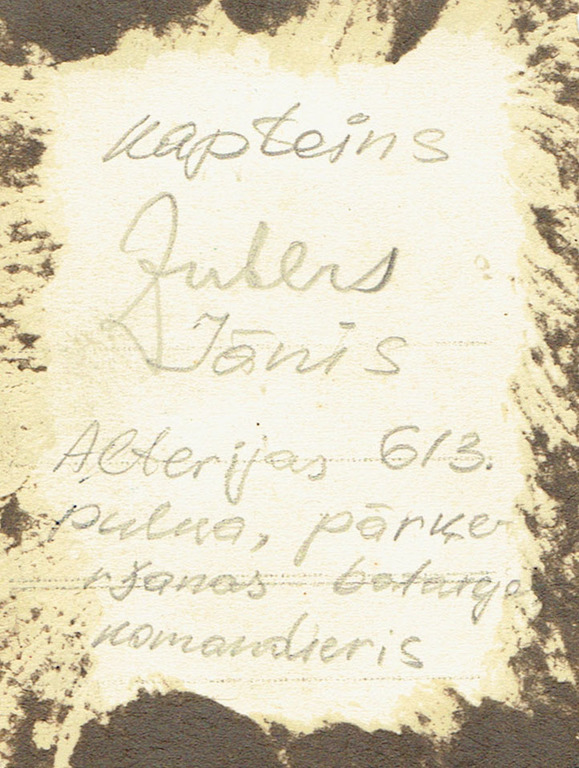 kapteins
Zuters
Jānis
Alterijas 613.
pulka, pārķe-
ršanas bataryas
komandieris